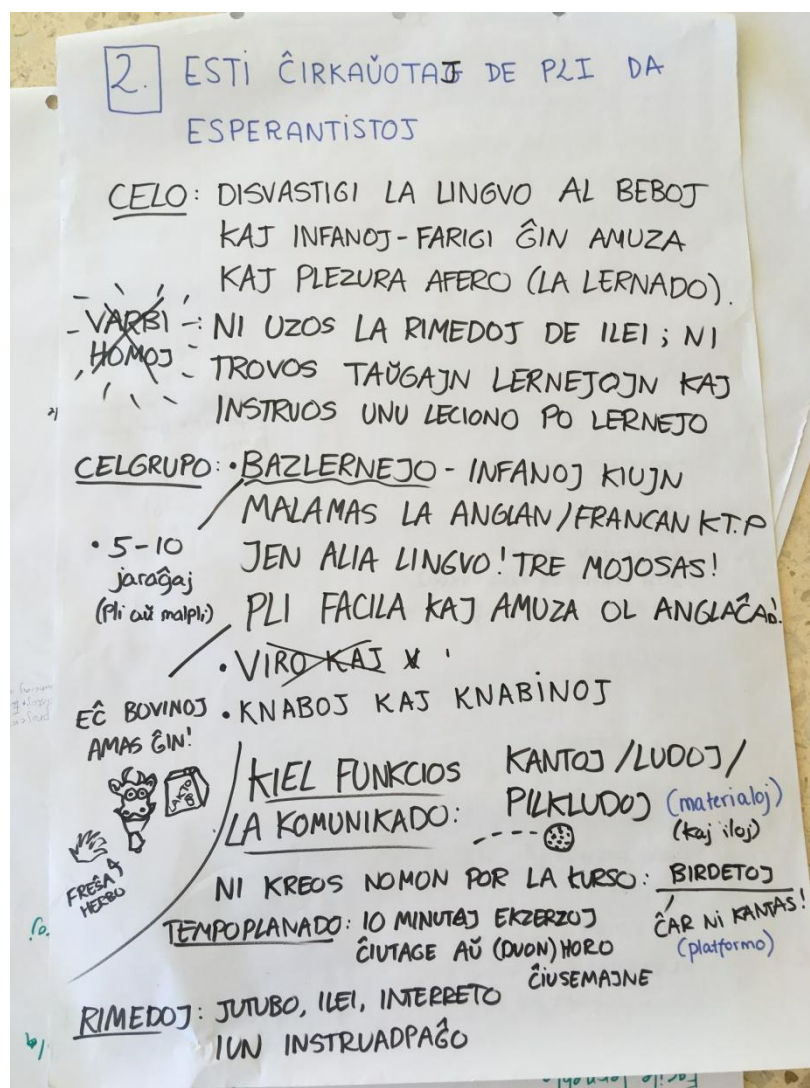 2. ESTI ĈIRKAŬOTAJ DE PLI DA
ESPERANTISTOJ
CELO: DISVASTIGI LA LINGVO AL BEBOJ
KAJ INFANOJ - FARIGI ĜIN AMUZA
KAJ PLEZURA AFERO (LA LERNADO).
VARBI HOMOJ
: NI UZOS LA RIMEDOJ DE ILEI; NI
TROVOS TAŬGAJN LERNEJOJN KAJ
INSTRUOS UNU LECIONO PO LERNEJO
CELGRUPO: • BAZLERNEJO - INFANOJ KIUJN
MALAMAS LA ANGLAN/FRANCAN K.T.P
JEN ALIA LINGVO! TRE MOJOSAS!
PLI FACILA KAJ AMUZA OL ANGLAĈAĴ!
• 5-10
jaraĝaj
(Pli aŭ malpli)
• VIRO KAJ V
• KNABOJ KAJ KNABINOJ
EĈ BOVINOJ
AMAS ĜIN!
LAKTO
FREŜA
HERBO
KIEL FUNKCIOS
LA KOMUNIKADO:
KANTOJ/LUDOJ/
PILKLUDOJ (materialoj)
(kaj iloj)
NI KREOS NOMON POR LA KURSO: BIRDETOJ
ĈAR NI KANTAS!
(platformo)
TEMPOPLANADO: 10 MINUTAJ EKZERZOJ
ĈIUTAGE AŬ (DUON)HORO
ĈIUSEMAJNE
RIMEDOJ: JUTUBO, ILEI, INTERRETO
IUN INSTRUADPAĜO